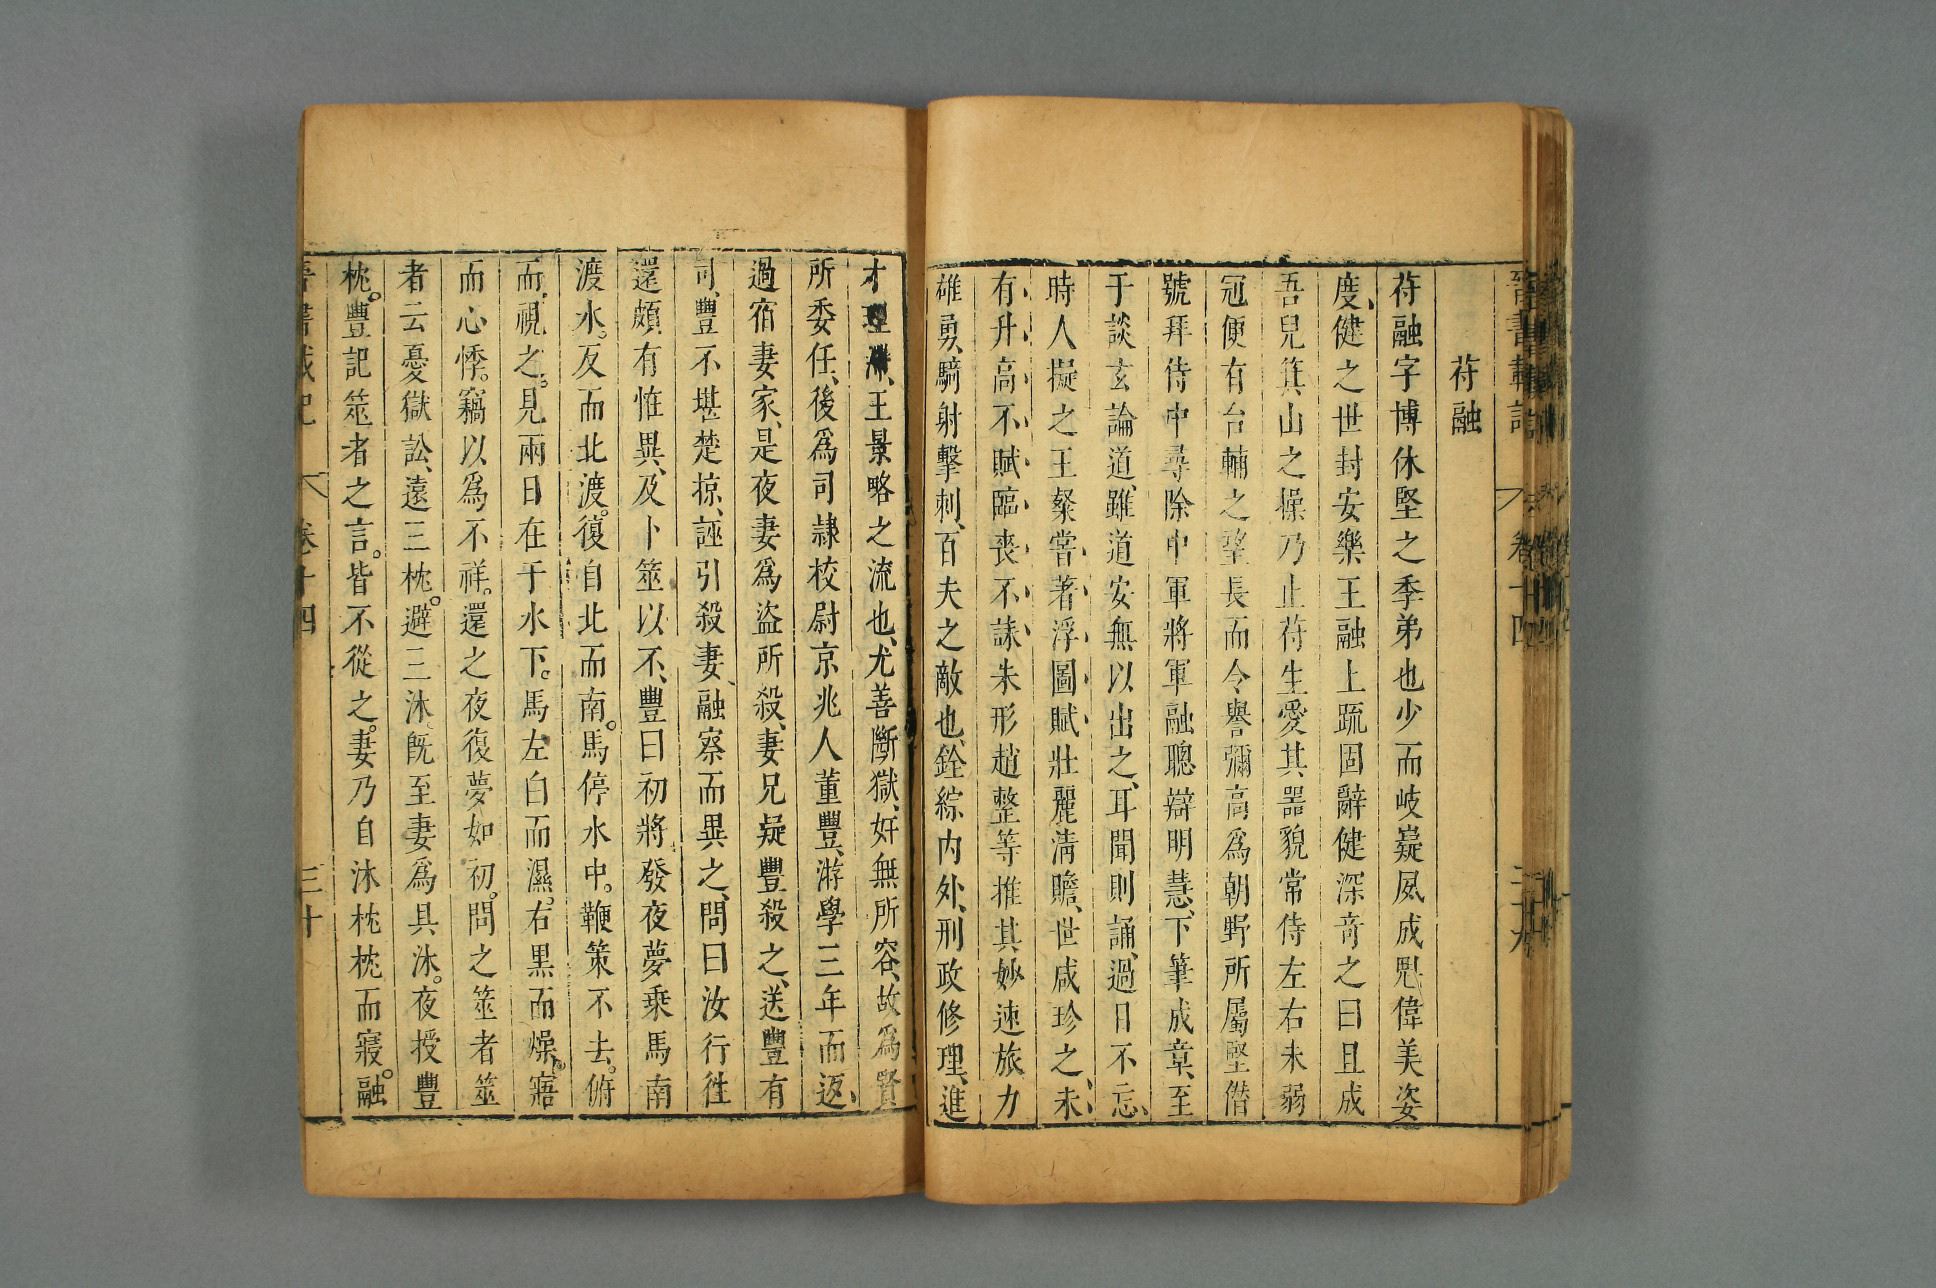 晉書載記 卷十四 二十九
苻融
苻融字博休堅之季弟也少而岐嶷夙成魁偉美姿
度健之世封安樂王融上疏固辭健深奇之曰且成
吾兒箕山之操乃止苻生愛其器貌常侍左右未弱
冠便有台輔之望長而令譽彌高爲朝野所屬堅僭
號拜侍中尋除中軍將軍融聰辯明慧下筆成章至
于談玄論道雖道安無以出之耳聞則誦過目不忘
時人擬之王粲嘗著浮圖賦壯麗淸贍世咸珍之未
有升高不賦臨喪不誄朱彤趙整等推其妙速旅力
雄勇騎射擊刺百夫之敵也銓綜內外刑政修理進
才理 王景略之流也尤善斷獄奸無所容故爲賢
所委任後爲司隷校尉京兆人董豐游學三年而返
過宿妻家是夜妻爲盜所殺妻兄疑豐殺之送豐有
司豐不堪楚掠誣引殺妻融察而異之問曰汝行徃
還頗有恠異及卜筮以不豐曰初將發夜夢乘馬南
渡水反而北渡復自北而南馬停水中鞭策不去俯
而視之見兩日在于水下馬左白而濕右黑而燥寤
而心悸竊以爲不祥還之夜復夢如初問之筮者筮
者云憂獄訟遠三枕避三沐旣至妻爲具沐夜授豐
枕豐記筮者之言皆不從之妻乃自沐枕枕而寢融
晉書載記 卷十四 三十